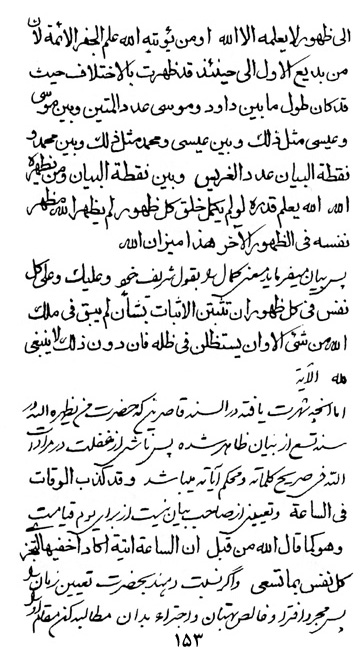 الی ظهور لا یعلمه الا الله او من یؤتیه الله علم الجفر الائمة لان
من بدیع الاول الی حینئذ قد ظهرت بالاختلاف حیث
قد کان طول ما بین داود و موسی عدد المتین و بین موسی
و عیسی مثل ذلک و بین عیسی و محمد مثل ذلک و بین محمد و
نقطة البیان عدد الغرس و بین نقطة البیان و من یظهره
الله الله یعلم قدره لو لم یکمل خلق کل ظهور لم یظهر الله مظهر
نفسه فی الظهور الآخر هذا میزان الله
پس بیان میفرماید بمعنی کمال و بقول شریف خود و علیک و علی کل
نفس فی کل ظهور ان تثبتن الاثبات بشأن لم یبق فی ملک
الله من شئ الا وان یستظلن فی ظله فان دون ذلک لا ینبغی
لله الآیة
اما آنچه شهرت یافته در السنه قاصرین که حضرت من یظهره الله در
سنه تسع از بیان ظاهر شده پس ناشی از غفلت در مرادات
الله فی صریح کلماته و محکم آیاته میباشد و قد کذب الوقات
فی الساعة و تعیین از صاحب بیان نیست از برای یوم قیامت
و هو کما قال الله من قبل ان الساعة آتیة اکاد اخفیها لتجزی
کل نفس بما تسعی و اگر نسبت دهند بحضرت تعیین زمان را
پس مجرد افترا و خالص بهتان و اجتراء بدان مطالبه کن مقام او را
۱۵۳